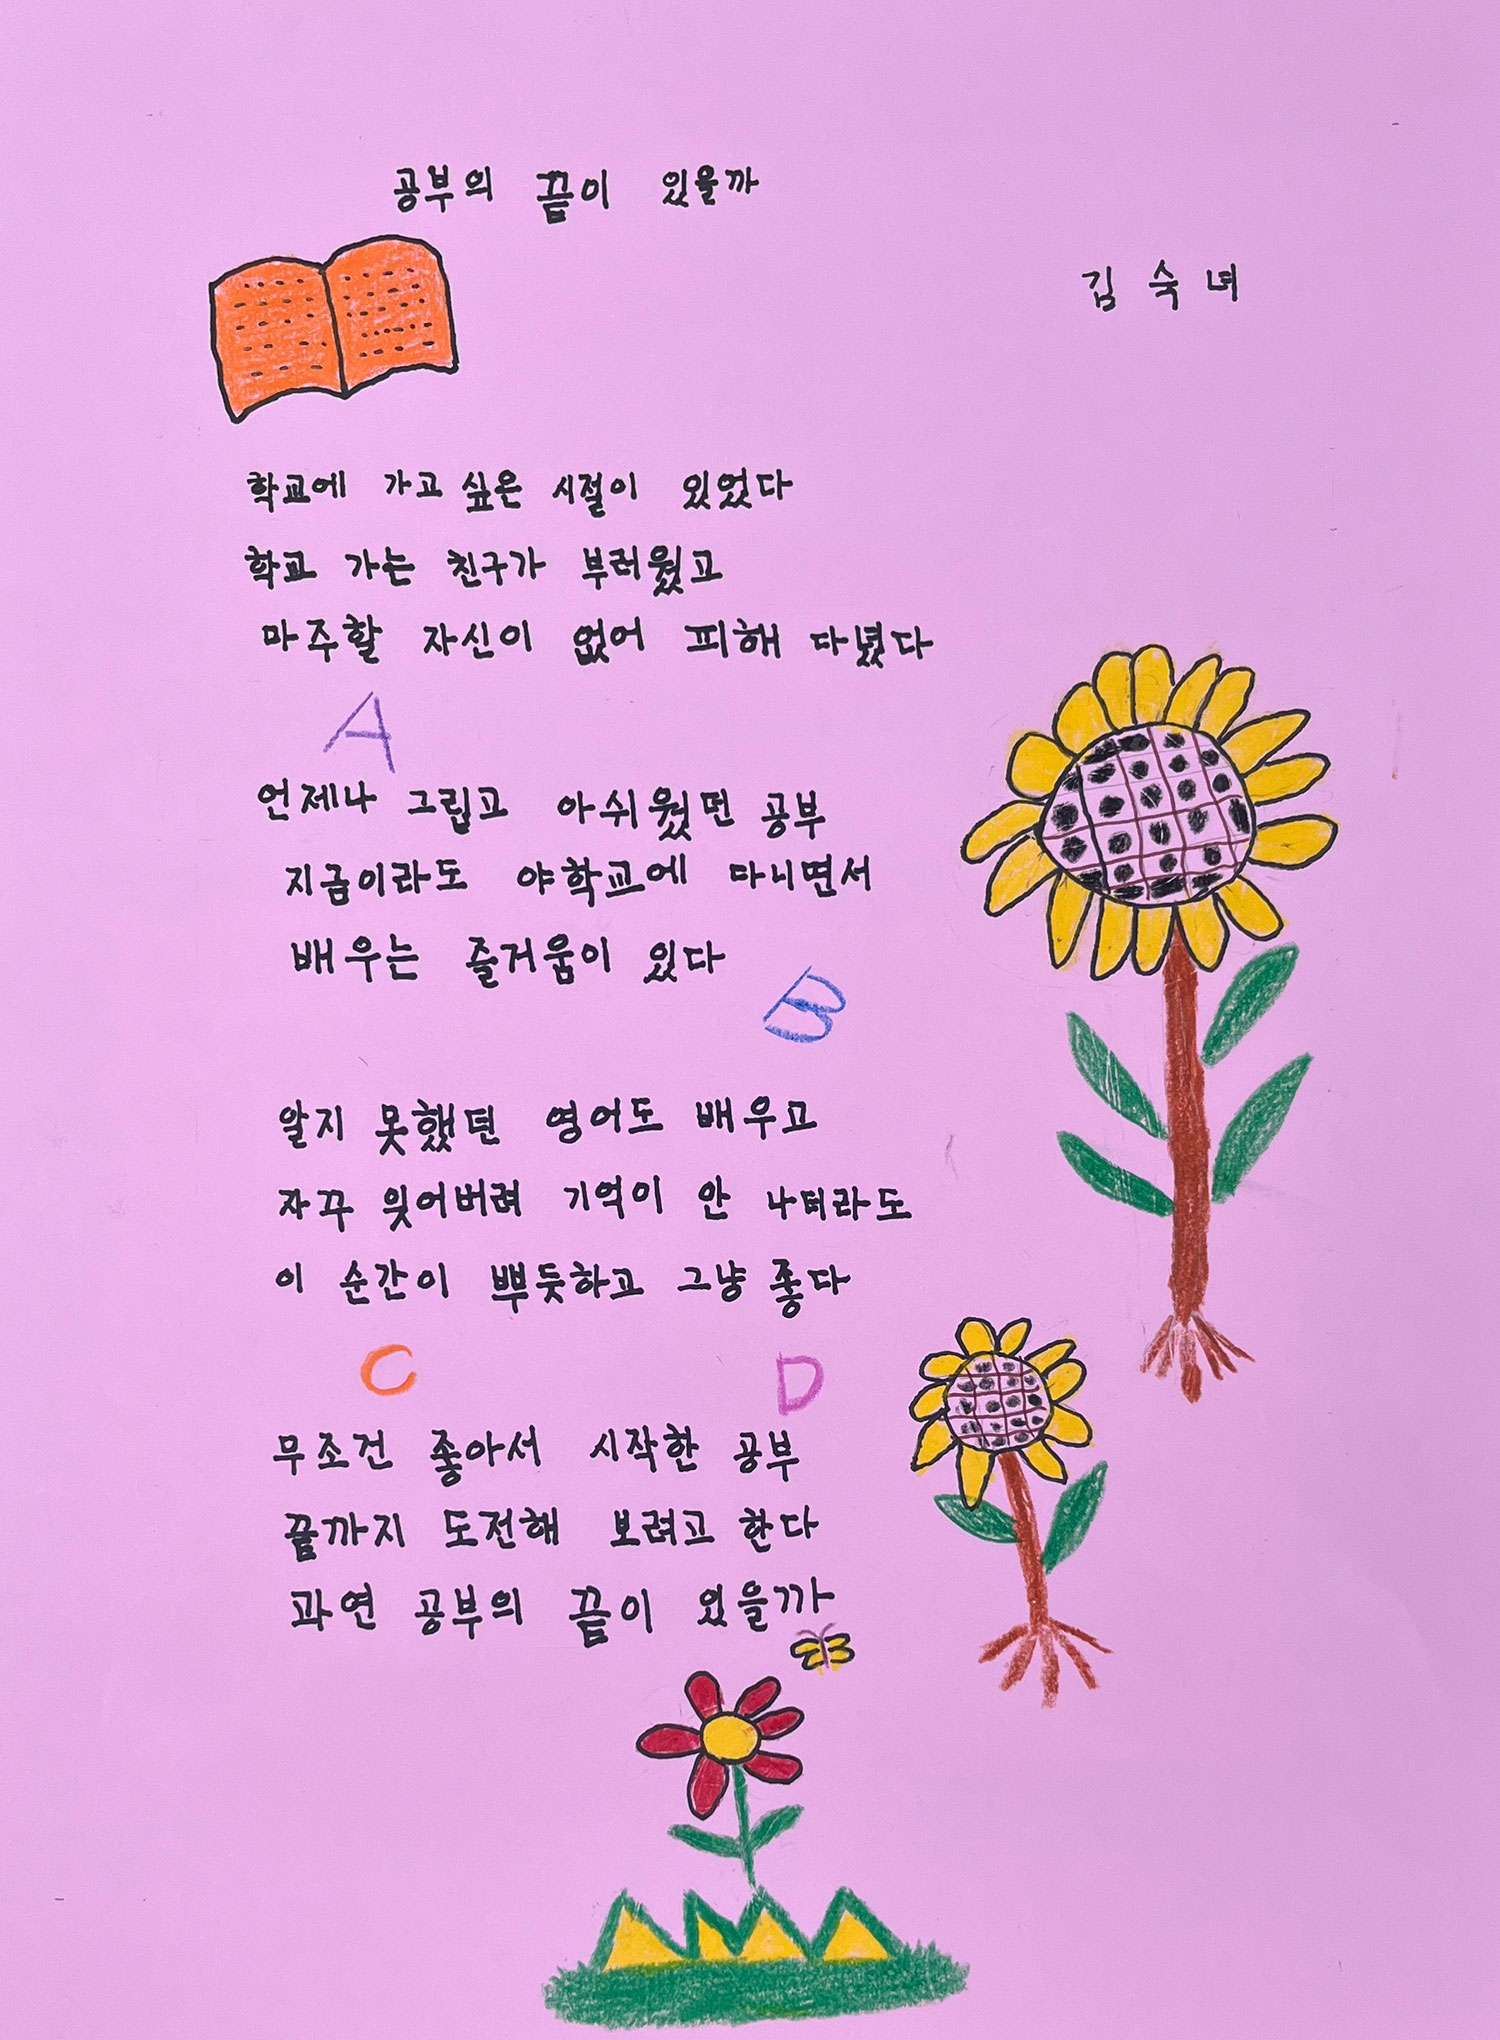 공부의 끝이 있을까
김숙녀
학교에 가고 싶은 시절이 있었다
학교 가는 친구가 부러웠고
마주할 자신이 없어 피해 다녔다
A
언제나 그립고 아쉬웠던 공부
지금이라도 야학교에 다니면서
배우는 즐거움이 있다
B
알지 못했던 영어도 배우고
자꾸 잊어버려 기억이 안 나더라도
이 순간이 뿌듯하고 그냥 좋다
C D
무조건 좋아서 시작한 공부
끝까지 도전해 보려고 한다
과연 공부의 끝이 있을까